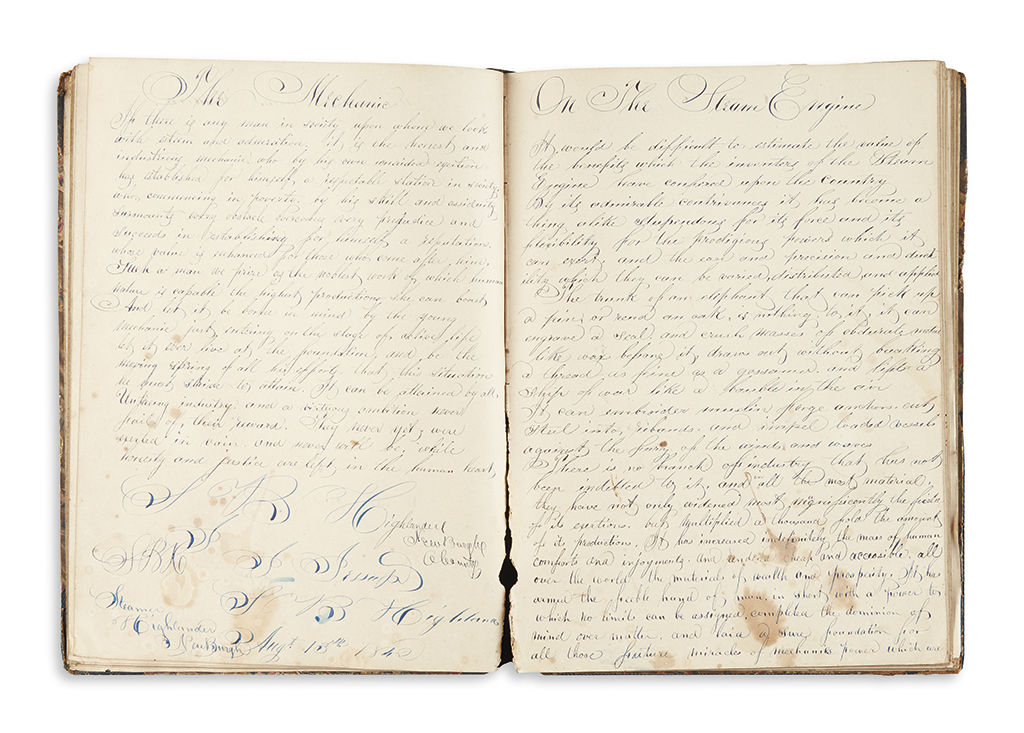 The Mechanic
If there is any man in society upon whom we look
with esteem and admiration, it is the honest and
industrious mechanic who by his own unaided exertion
has established for himself, a respectable station in society,
who, commencing in poverty, by his skill and assiduity,
surmounts every obstacle overcomes every prejudice and
succeeds in establishing for himself a reputation
whose value is enhanced for those who come after him;
Such a man we prize as the noblest work of which human
nature is capable the highest productions she can boast
And let it be borne in mind by the young
mechanic just entering on the stage of active life
let it ever live at the foundation, and be the
moving spring of all his efforts that, this situation
he must strive to attain. It can be attained by all.
Untiring industry and a virtuous ambition never
fail of their reward. They never yet, were
exerted in vain and never will be, while
honesty and justice are left, in the human heart,
S B Highlander
NewBurgh
O County
SBH
S B Highland
Steamer
Highlander
NewBurgh Augt 184
On The Steam Engine
It would be difficult to estimate the value of
the benefits which the inventors of the Steam
Engine have confered upon the country
By its admirable contrivances it, has become a
thing alike stupendous for its force and its
plexibility for the prodigious powers which it
can exert; and the ease and precision and duct
ility which they can be varied, distributed and applied
The trunk of an elephant that can pick up
a pin or rend an oak, is nothing to it, it can
engrave a seal and crush masses of obdurate metal
like wax before it, draws out without breaking
a thread as fine as a gossamer and lifts a
ship of war like a bauble in the air
It can embroider muslin forge anchors cut
steel into ribands and impel loaded vessels
against the fury of the winds and waves
There is no branch of industry that has not
been indebted to it, and all the most material,
they have not only widened most magnificently the field
of its exertions, but multiplied a thousand fold the amount
of its production. It has increased indefinitely the mass of human
comforts and injoyments and cheap and accessible all
over the world the materials of wealth and prosperity. It has
armed the feeble hand of man in short with a power to
which no limits can be assigned completed the dominion of
mind over matter. and laid a sure foundation for
all those future miracles of mechanik power which are